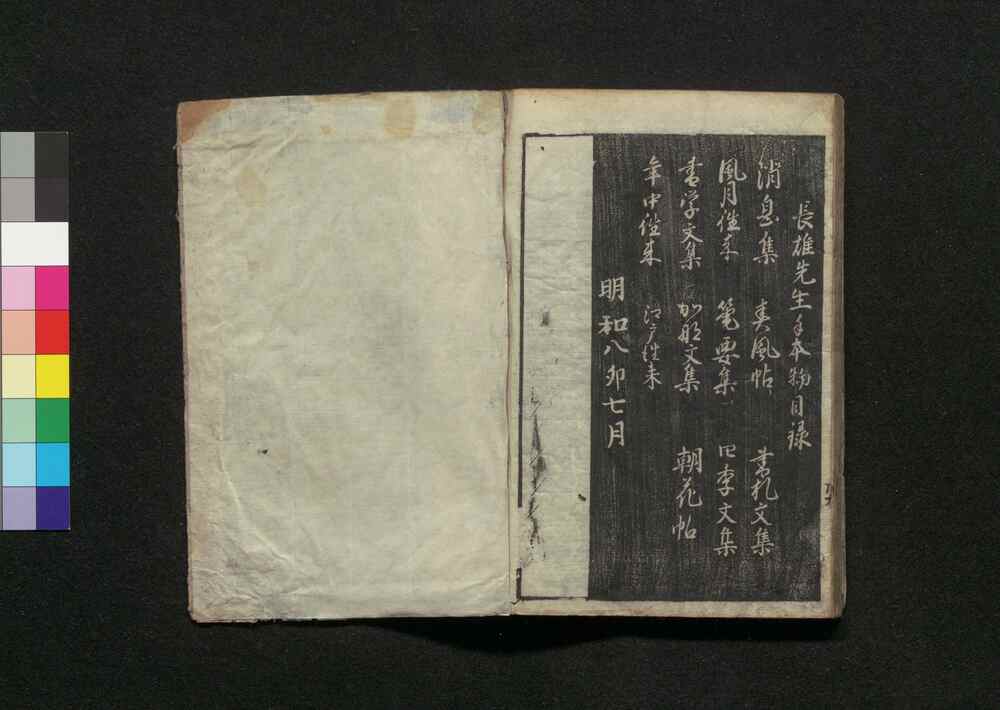 長雄先生手本物目録
消息集 春風帖 書札文集
風月徃来 篭要集 四季文集
書学文集 加那文集 朝花帖
年中徃来 江戸徃来
明和八卯七月